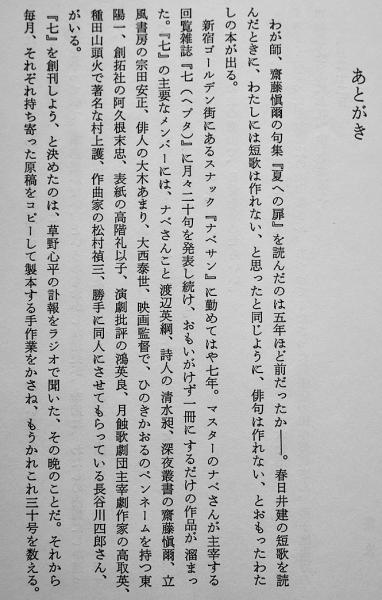 あとがき
わが師、齋藤愼爾の句集『夏への扉』を読んだのは五年ほど前だったか――。春日井建の短歌を読
んだときに、わたしには短歌は作れない、と思ったと同じように、俳句は作れない、とおもったわた
しの本が出る。
新宿ゴールデン街にあるスナック『ナベサン』に勤めてはや七年。マスターのナベさんが主宰する
回覧雑誌『七（ヘプタ）』に月々二十句を発表し続け、おもいがけず一冊にするだけの作品が溜まっ
た。『七』の主要なメンバーには、ナベさんこと渡辺英綱、詩人の清水昶、深夜叢書の齋藤愼爾、立
風書房の宗田安正、俳人の大木あまり、大西泰世、映画監督で、ひのきかおるのペンネームを持つ東
陽一、創拓社の阿久根末忠、表紙の高階礼以子、演劇批評の鴻英良、月蝕歌劇団主宰劇作家の高取英、
種田山頭火で著名な村上護、作曲家の松村禎三、勝手に同人にさせてもらっている長谷川四郎さん、
がいる。
『七』を創刊しよう、と決めたのは、草野心平の訃報をラジオで聞いた、その晩のことだ。それから
毎月、それぞれ持ち寄った原稿をコピーして製本する手作業をかさね、もうかれこれ三十号を数える。